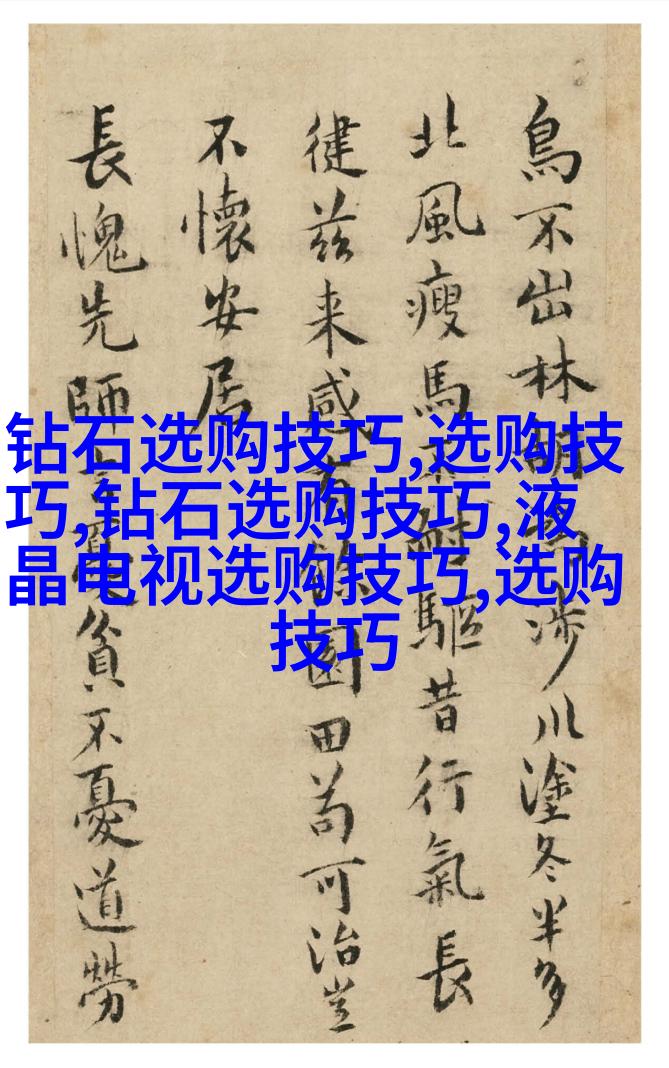 钻石选购技巧,选购技
巧,钻石选购技巧,液
晶电视选购技巧,选购
技巧
鳥不出林涉川塗冬半多
北風瘦馬不耐驅昔行氣長
健茲来感百餘園田苟可治豈
不懷安居
長愧先師言貧不憂道勞